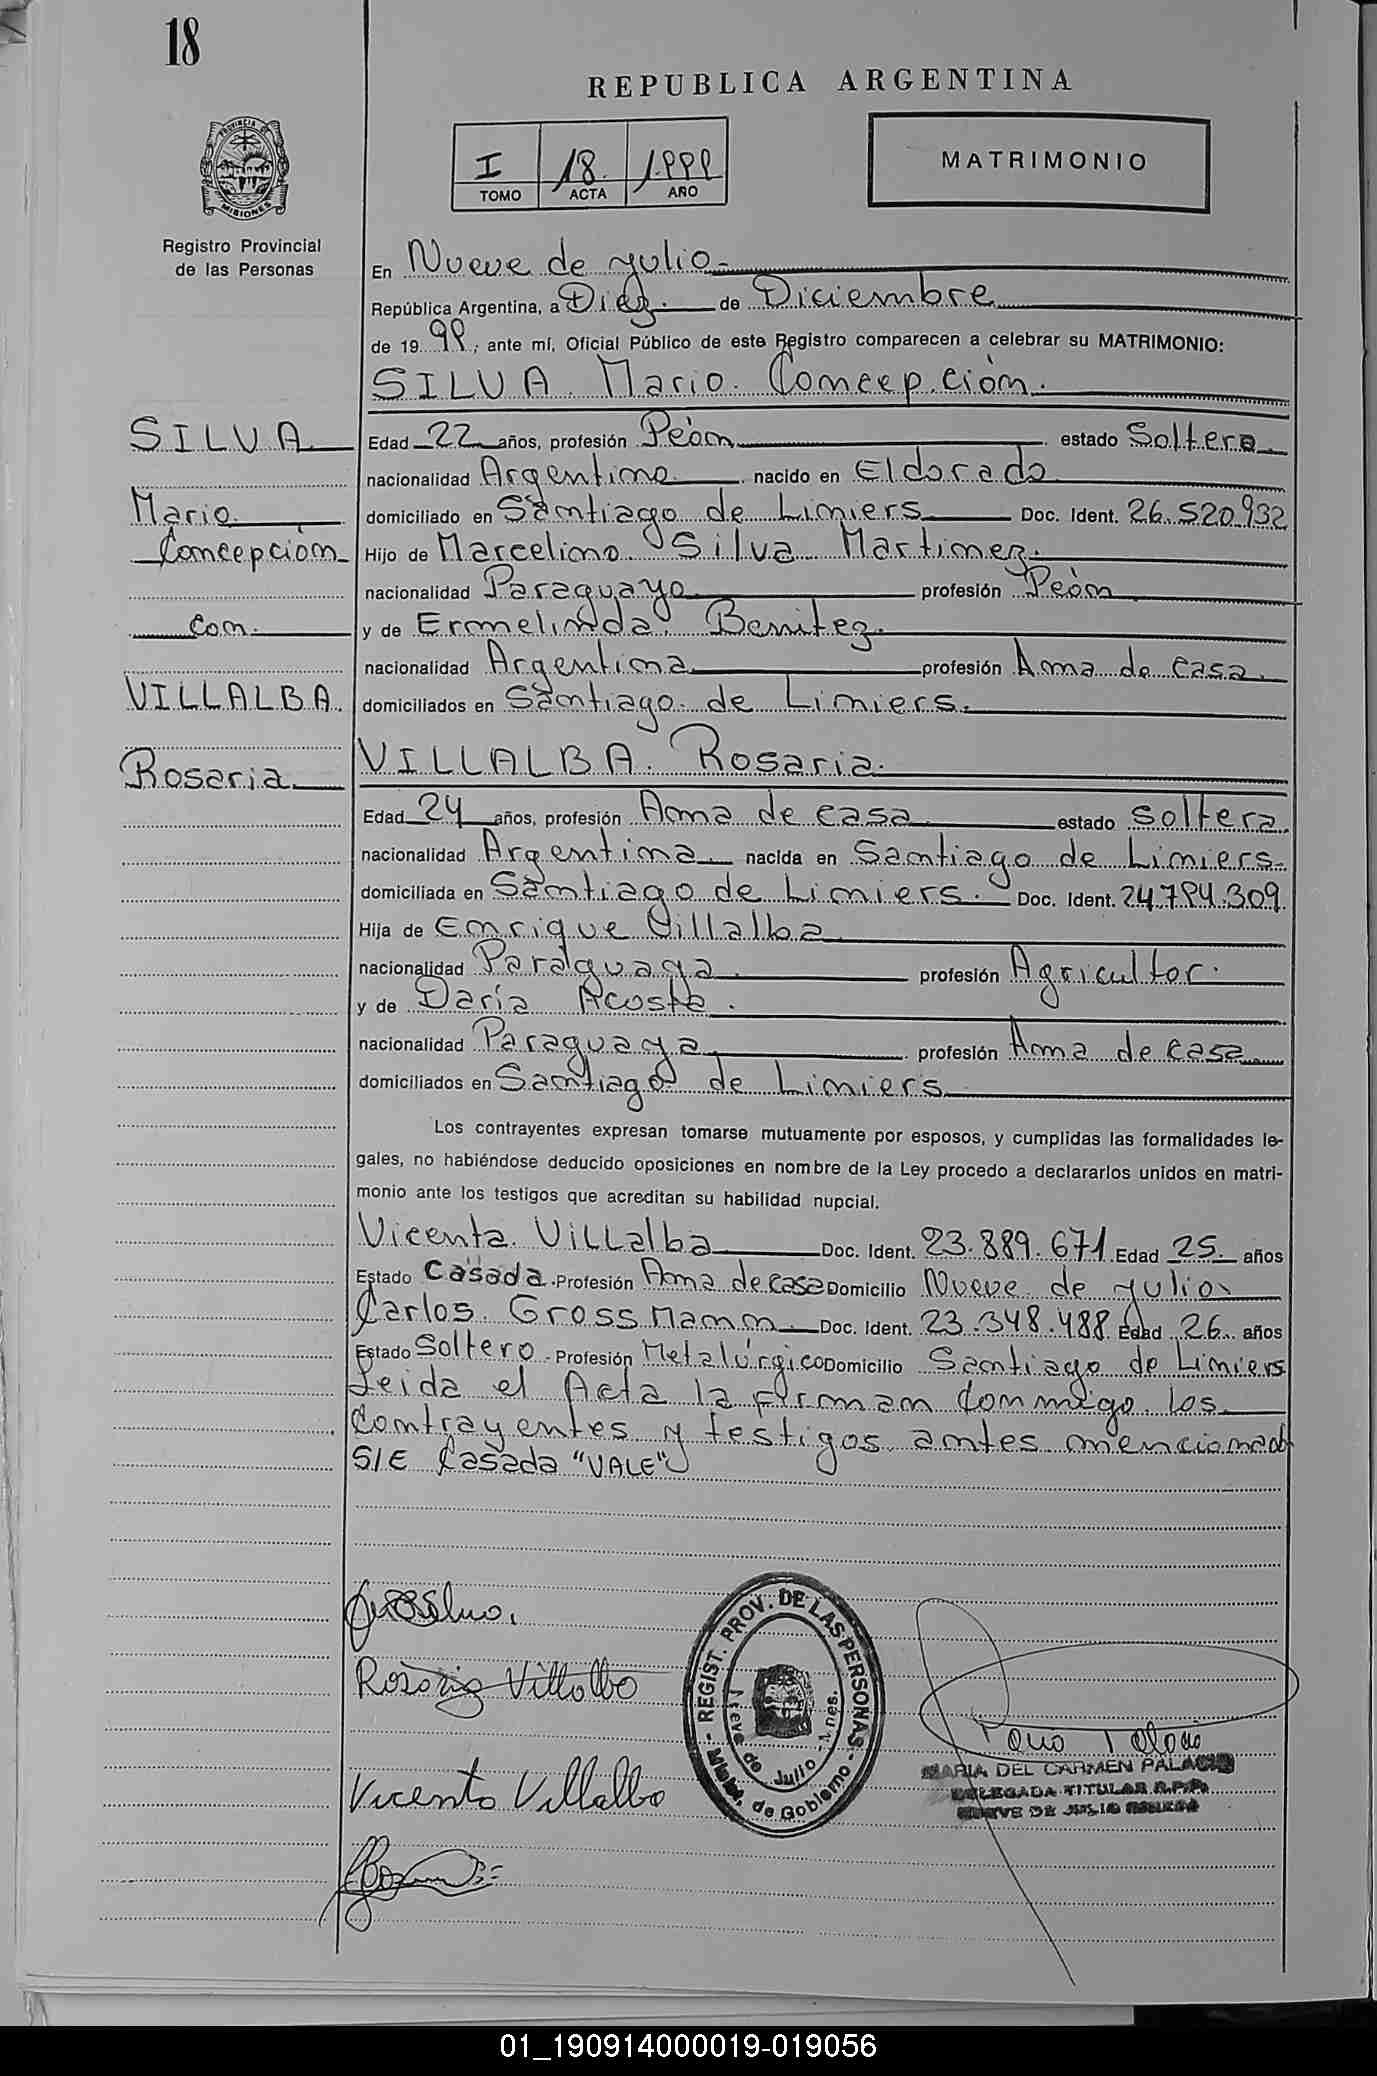 18
REPUBLICA ARGENTINA
I 18. 1.999
TOMO ACTA AÑO
MATRIMONIO
PROVINCIA DE MISIONES
Registro Provincial
de las Personas
En Nueve de Julio.
República Argentina, a Diez. de Diciembre
de 19 99, ante mí, Oficial Público de este Registro comparecen a celebrar su MATRIMONIO:
SILVA. Mario. Concepción.
SILVA
Mario
Concepción
con.
VILLALBA
Rosaria
Edad 22 años, profesión Peón estado Soltero
nacionalidad Argentino nacido en Eldorado
domiciliado en Santiago de Liniers Doc. Ident. 26.520.932
Hijo de Marcelino Silva Martinez.
nacionalidad Paraguayo profesión Peón
y de Ermelinda Benitez.
nacionalidad Argentina profesión Ama de casa
domiciliados en Santiago de Liniers.
VILLALBA. Rosaria.
Edad 24 años, profesión Ama de casa estado Soltera
nacionalidad Argentina nacida en Santiago de Liniers
domiciliada en Santiago de Liniers. Doc. Ident. 24.794.309
Hija de Enrique Villalba
nacionalidad Paraguaya profesión Agricultor.
y de Daría Acosta.
nacionalidad Paraguaya profesión Ama de casa
domiciliados en Santiago de Liniers
Los contrayentes expresan tomarse mutuamente por esposos, y cumplidas las formalidades le-
gales, no habiéndose deducido oposiciones en nombre de la Ley procedo a declararlos unidos en matri-
monio ante los testigos que acreditan su habilidad nupcial.
Vicenta Villalba Doc. Ident. 23.889.671 Edad 25. años
Estado Casada Profesión Ama de casa Domicilio Nueve de Julio.
Carlos. Gross Mann. Doc. Ident. 23.348.488 Edad 26. años
Estado Soltero Profesión Metalúrgico Domicilio Santiago de Liniers
Leida el Acta la firman Conmigo los
Contrayentes y testigos antes mencionad
S/E Casada "VALE"
Rosaria Villalba
Vicenta Villalba
REGIST. PROV. DE LAS PERSONAS - Minist. de Gobierno -
Nueve de Julio - Mnes.
MARIA DEL CARMEN PALACIO
DELEGADA TITULAR R.P.P.
NUEVE DE JULIO
01_190914000019-019056